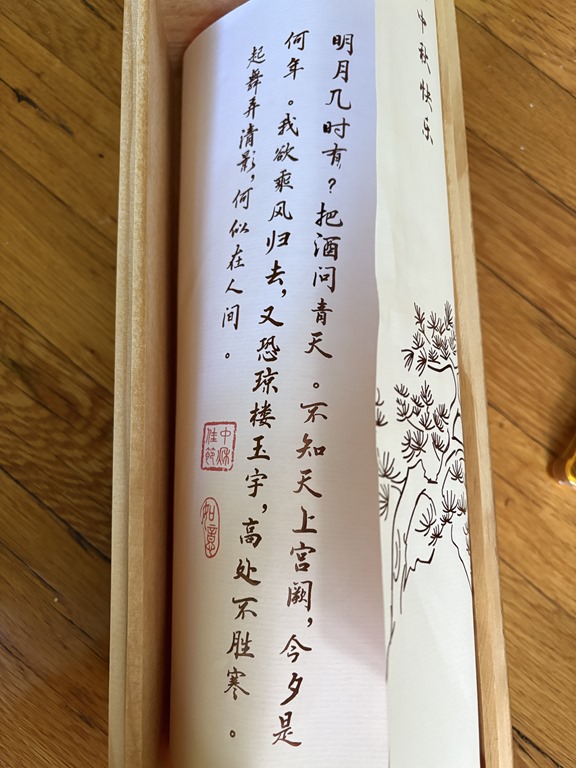 中秋快乐
明月几时有？把酒问青天。不知天上宫阙，今夕是
何年。我欲乘风归去，又恐琼楼玉宇，高处不胜寒。
起舞弄清影，何似在人间。
中秋
佳节
如意